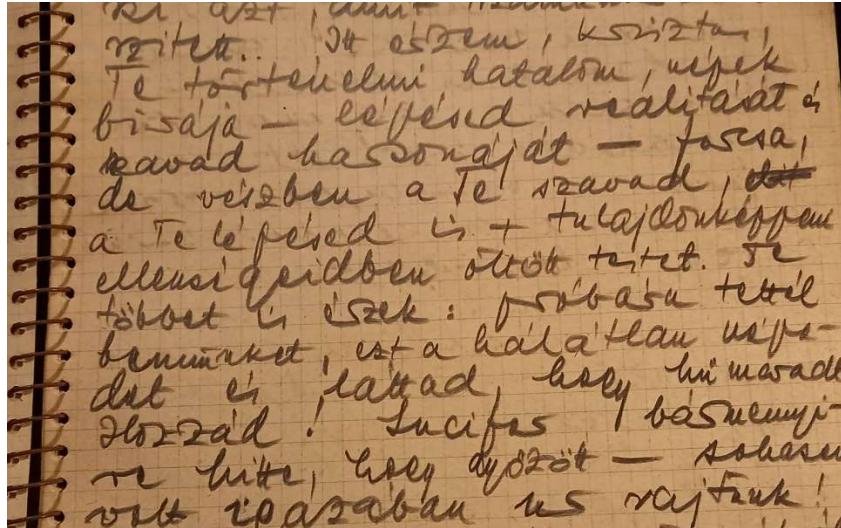 ki azt, amit
Itt érzem, Krisztus,
Te történelmi hatalom, népek
bírája — lépésed realitását és
szavad harsonáját — furcsa,
de részben a Te szavad,
a Te lépésed is + tulajdonképpen
ellenségeidben öltött testet. Te
többet is érzek: próbára tettél
bennünket, ezt a hálátlan népe-
det és láttad, hogy hű maradt
Hozzád! Lucifer bármennyi-
re hitte, hogy győzött — sohasem
volt igazában úr rajtunk!